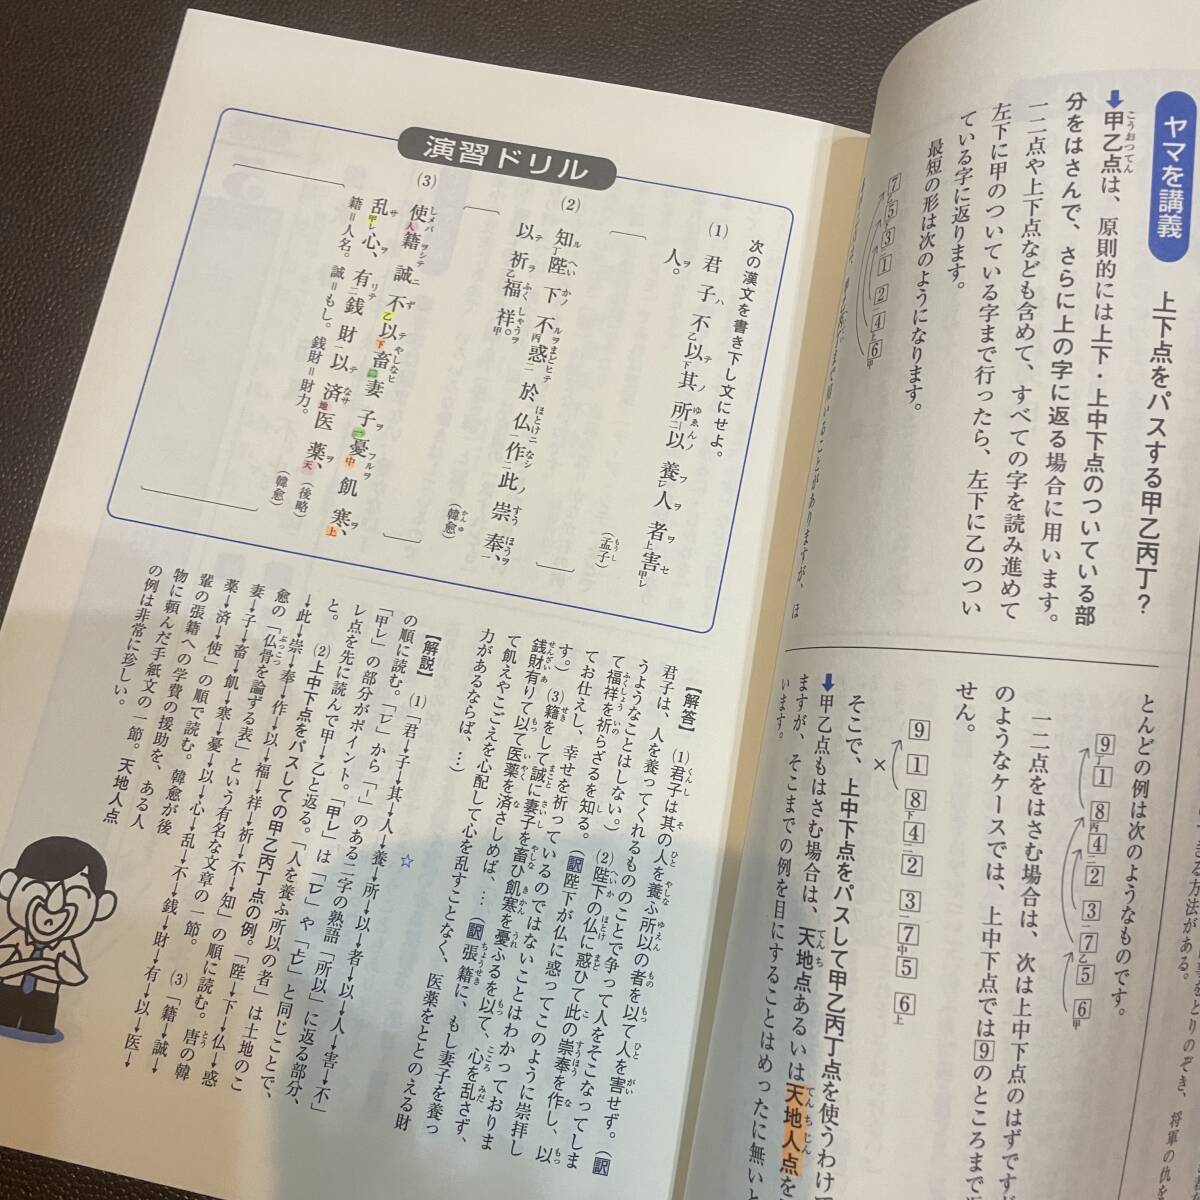 ヤマを講義
上下点をパスする甲乙丙丁？
甲乙点は、原則的には上下・上中下点のついている部
分をはさんで、さらに上の字に返る場合に用います。
一二点や上下点なども含めて、すべての字を読み進めて
左下に甲のついている字まで行ったら、左下に乙のつい
ている字に返ります。
最短の形は次のようになります。
7乙 5下 3二 1 2一 4上 6甲
とんどの例は次のようなものです。
9丁 1 8丙 4二 2 3一 7乙 5 6甲
一二点をはさむ場合は、次は上中下点のはずですが
のようなケースでは、上中下点では9のところまで
せん。
9 1 8下 4二 2 3一 7中 5 6上
×
そこで、上中下点をパスして甲乙丙丁点を使うわけ
甲乙点もはさむ場合は、天地点あるいは天地人点を
ますが、そこまでの例を目にすることはめったに無いと
います。
演習ドリル
次の漢文を書き下し文にせよ。
(1) 君子ハ不乙以テ下其ノ所二以ゆゑんノ養フレ人ヲ者ヲ上害セ甲レ
人ヲ。
（孟子）
(2) 知ル丁陛下ノ不ルヲ丙惑ヒテ二於仏ニ一作シ二此ノ崇奉ヲ一、
以テ祈ラ乙福祥ヲ甲。
（韓愈）
(3) 使シメバ人籍ヲシテ誠ニ不ず乙以テ下畜ヒ二妻子ヲ一憂フルヲ中飢寒ヲ上、
乱サ甲レ心ヲ、有リテ二銭財一以テ済なサ地医薬ヲ天、
（後略）
籍＝人名。誠＝もし。銭財＝財力。
（韓愈）
【解答】 (1)君子は其の人を養ふ所以の者を以て人を害せず。（訳
君子は、人を養ってくれるもののことで争って人をそこなってしま
うようなことはしない。） (2)陛下の仏に惑ひて此の崇奉を作し、以
て福祥を祈らざるを知る。（訳陛下が仏に惑ってこのように崇拝し
てお仕えし、幸せを祈っているのではないことはわかっておりま
す。） (3)籍をして誠に妻子を畜ひ飢寒を憂ふるを以て、心を乱さず、
銭財有りて以て医薬を済さしめば、…（訳張籍に、もし妻子を養っ
て飢えやこごえを心配して心を乱すことなく、医薬をととのえる財
力があるならば、…）
【解説】 (1)「君→子→其→人→養→所→以→者→以→人→害→不」
の順に読む。「レ」から「二」のある二字の熟語「所以」に返る部分、
「甲レ」の部分がポイント。「甲レ」は「一レ」や「上レ」と同じことで、
レ点を先に読んで甲→乙と返る。「人を養ふ所以の者」は土地のこ
と。 (2)上中下点をパスしての甲乙丙丁点の例。「陛→下→仏→惑
→此→崇→奉→作→以→福→祥→祈→不→知」の順に読む。唐の韓
愈の「仏骨を論ずる表」という有名な文章の一節。 (3)「籍→誠→
妻→子→畜→飢→寒→憂→以→心→乱→不→銭→財→有→以→医→
薬→済→使」の順で読む。韓愈が後
輩の張籍への学費の援助を、ある人
物に頼んだ手紙文の一節。天地人点
の例は非常に珍しい。